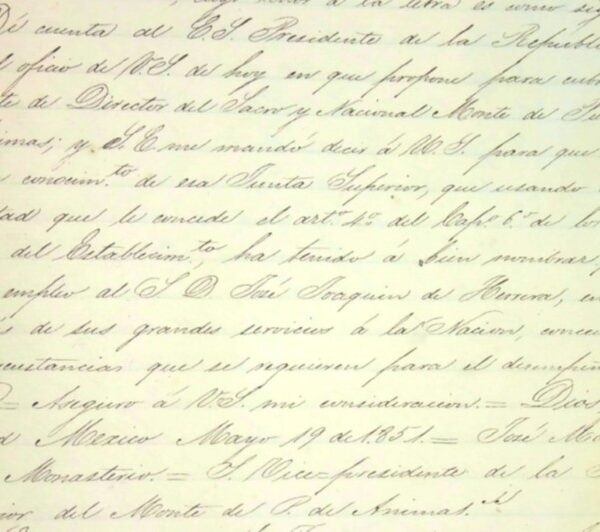 cuyo tenor á la letra es como sig
Dí cuenta al E. S. Presidente de la Repúbli
l oficio de V. S. de hoy en que propone para cubr
te de Director del Sacro y Nacional Monte de
imas; y S. E. me mandó decir á V. S. para que
conocim.to de esa Junta Superior, que usando
tad que le concede el art.o 4.o del Cap.o 6.o de lo
del Establecim.to, ha tenido á bien nombrar
empleo al S. D. José Joaquin de Herrera, en
s de sus grandes servicios á la Nacion, conc
cunstancias que se requieren para el desempeñ
= Aseguro á V. S. mi consideracion. = Dios
d Mexico Mayo 19 de 1851. = José M
Monasterio. = S. Vice-presidente de la
ior del Monte de P. de Animas."